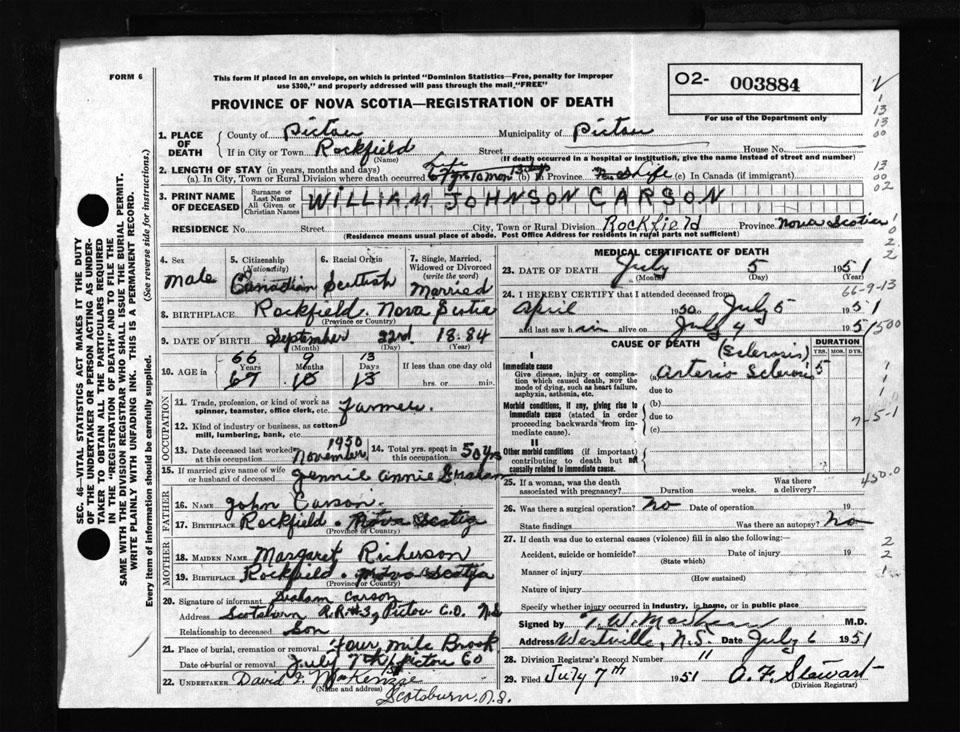 FORM 6
This form if placed in an envelope, on which is printed "Dominion Statistics—Free, penalty for improper
use $300," and properly addressed will pass through the mail, "FREE"
O2- 003884
For use of the Department only
PROVINCE OF NOVA SCOTIA—REGISTRATION OF DEATH
1. PLACE OF DEATH County of Pictou Municipality of Pictou
If in City or Town Rockfield Street House No.
(Name) (If death occurred in a hospital or institution, give the name instead of street and number)
2. LENGTH OF STAY (in years, months and days)
(a). In City, Town or Rural Division where death occurred Life 67 yrs 10 mon (b) In Province Life (c) In Canada (if immigrant)
3. PRINT NAME OF DECEASED Surname or Last Name All Given or Christian Names WILLIAM JOHNSON CARSON
RESIDENCE No. Street City, Town or Rural Division Rockfield Province Nova Scotia
(Residence means usual place of abode. Post Office Address for residents in rural parts not sufficient)
4. Sex 5. Citizenship (Nationality) 6. Racial Origin 7. Single, Married, Widowed or Divorced (write the word)
male Canadian Scottish Married
8. BIRTHPLACE Rockfield. Nova Scotia
(Province or Country)
9. DATE OF BIRTH September 22nd 1884
(Month) (Day) (Year)
66 9 13
10. AGE in Years Months Days If less than one day old
67 10 13 hrs. or min.
OCCUPATION
11. Trade, profession, or kind of work as spinner, teamster, office clerk, etc. Farmer.
12. Kind of industry or business, as cotton mill, lumbering, bank, etc.
13. Date deceased last worked at this occupation November 1950 14. Total yrs. spent in this occupation 50 yrs
15. If married give name of wife or husband of deceased Jennie Annie Graham
FATHER
16. NAME John Carson
17. BIRTHPLACE Rockfield. Nova Scotia
(Province or Country)
MOTHER
18. MAIDEN NAME Margaret Richerson
19. BIRTHPLACE Rockfield. Nova Scotia
(Province or Country)
20. Signature of informant Graham Carson
Address Scotsburn R.R.#3, Pictou Co. N.S
Relationship to deceased Son
21. Place of burial, cremation or removal Four Mile Brook
Date of burial or removal July 7th Pictou Co
22. UNDERTAKER David F. MacKenzie
(Name and address) Scotsburn. N.S.
MEDICAL CERTIFICATE OF DEATH
23. DATE OF DEATH July 5 1951
(Month) (Day) (Year)
66-9-13
24. I HEREBY CERTIFY that I attended deceased from
April 1950 to July 5 1951
and last saw him alive on July 4 1951
500
CAUSE OF DEATH (Sclerosis) DURATION
YRS. MOS. DYS.
I
Immediate cause
Give disease, injury or complication which caused death, NOT the mode of dying, such as heart failure, asphyxia, asthenia, etc.
(a) Arterio Sclerosis 5
due to
Morbid conditions, if any, giving rise to immediate cause (stated in order proceeding backwards from immediate cause).
(b)
due to
(c)
7-5-1
II
Other morbid conditions (if important) contributing to death but not causally related to immediate cause.
450.0
25. If a woman, was the death associated with pregnancy? Duration weeks. Was there a delivery?
26. Was there a surgical operation? No Date of operation 19
State findings Was there an autopsy? No
27. If death was due to external causes (violence) fill in also the following:
Accident, suicide or homicide? Date of injury 19
(State which)
Manner of injury
(How sustained)
Nature of injury
Specify whether injury occurred in industry, in home, or in public place
Signed by M.D.
Address Westville, N.S. Date July 6 1951
28. Division Registrar's Record Number 11
29. Filed July 7th 1951 A. F. Stewart
(Division Registrar)
SEC. 46—VITAL STATISTICS ACT MAKES IT THE DUTY
OF THE UNDERTAKER OR PERSON ACTING AS UNDER-
TAKER TO OBTAIN ALL THE PARTICULARS REQUIRED
IN THE "REGISTRATION OF DEATH" AND TO FILE THE
SAME WITH THE DIVISION REGISTRAR WHO SHALL ISSUE THE BURIAL PERMIT.
WRITE PLAINLY WITH UNFADING INK. THIS IS A PERMANENT RECORD.
Every item of information should be carefully supplied. (See reverse side for instructions.)